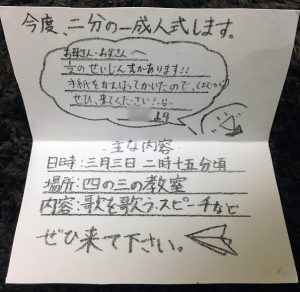 今度、二分の一成人式します。
お母さん・お父さんへ
手紙をがんばってかいたので、
ぜひ、来てください!!
より
主な内容
日時:三月三日 二時十五分頃
場所:四の三の教室
内容:歌を歌う・スピーチなど
ぜひ来て下さい。